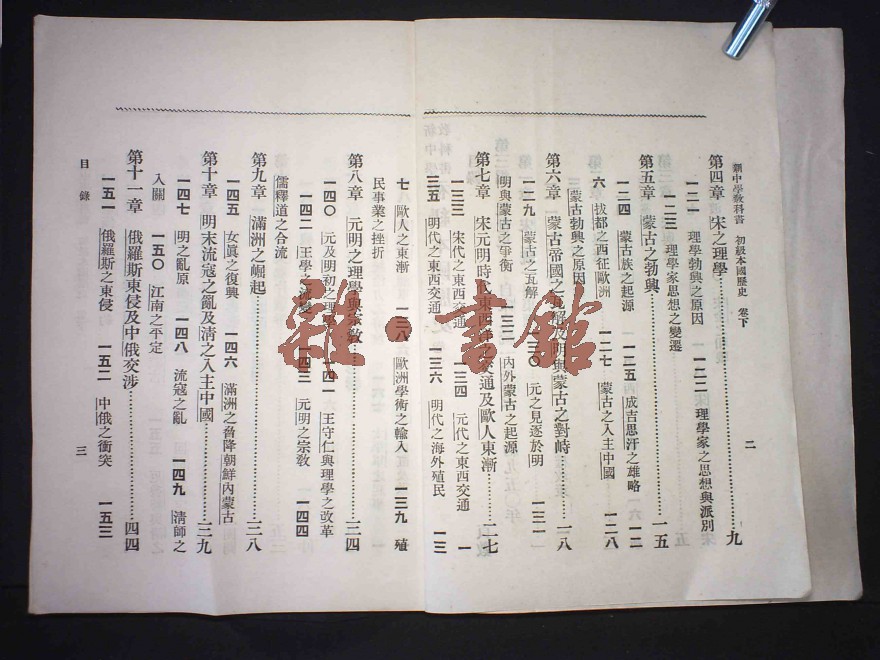 新中學教科書 初級本國歷史 卷下
二
第四章 宋之理學……九
一二一 理學勃興之原因 一二二 理學家之思想與派別
一二三 理學家思想之變遷
第五章 蒙古之勃興……一五
一二四 蒙古族之起源 一二五 成吉思汗之雄略 一二
六 拔都之西征歐洲 一二七 蒙古之入主中國 一二八
蒙古勃興之原因
第六章 蒙古帝國之瓦解及明與蒙古之對峙……一八
一二九 蒙古之瓦解 一三〇 元之見逐於明 一三一
明與蒙古之爭衡 一三二 內外蒙古之起源
第七章 宋元明時代東西洋之交通及歐人東漸……二七
一三三 宋代之東西交通 一三四 元代之東西交通 一
三五 明代之東西交通 一三六 明代之海外殖民 一三
七 歐人之東漸 一三八 歐洲學術之輸入 一三九 殖
民事業之挫折
第八章 元明之理學與宗教……三四
一四〇 元及明初之理學 一四一 王守仁與理學之改革
一四二 王學之流變 一四三 元明之宗教 一四四
儒釋道之合流
第九章 滿洲之崛起……三八
一四五 女眞之復興 一四六 滿洲之脅降朝鮮內蒙古
第十章 明末流寇之亂及清之入主中國……三九
一四七 明之亂原 一四八 流寇之亂 一四九 清師之
入關 一五〇 江南之平定
第十一章 俄羅斯東侵及中俄交涉……四四
一五一 俄羅斯之東侵 一五二 中俄之衝突 一五三
目錄
三
雜·書館